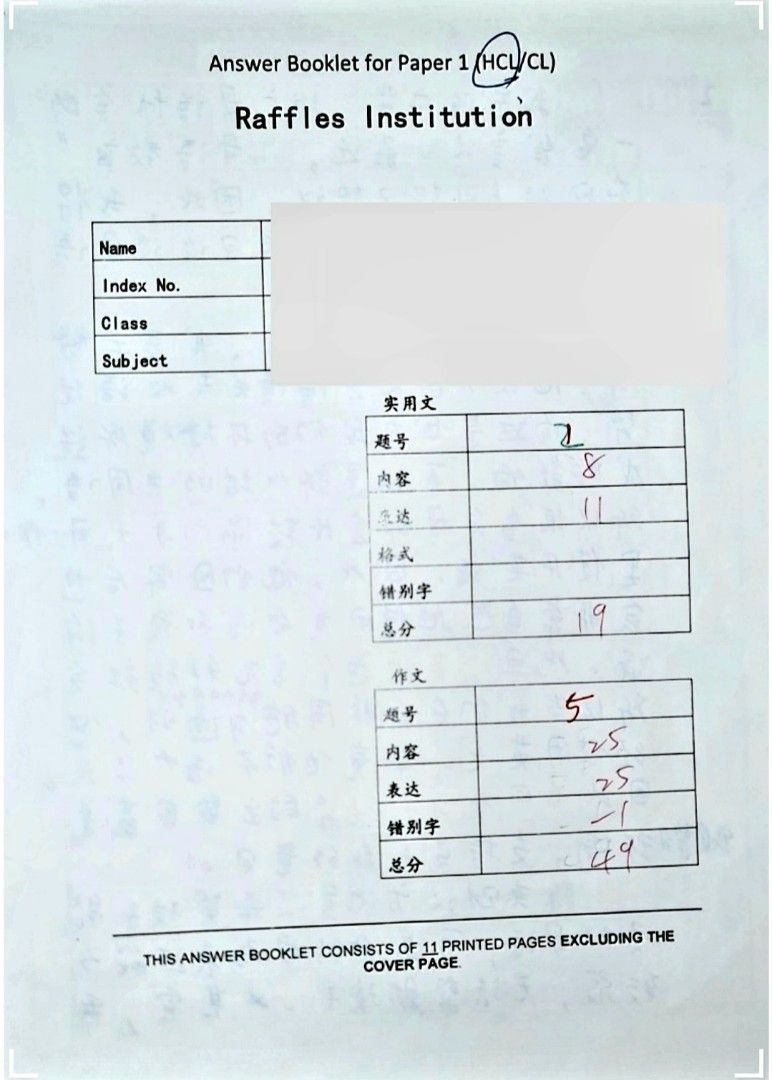 Answer Booklet for Paper 1 (HCL/CL)
Raffles Institution
Name
Index No.
Class
Subject
实用文
题号
内容 8
表达 11
格式
错别字
总分 19
作文
题号 5
内容 25
表达 25
错别字 -1
总分 49
THIS ANSWER BOOKLET CONSISTS OF 11 PRINTED PAGES EXCLUDING THE
COVER PAGE.